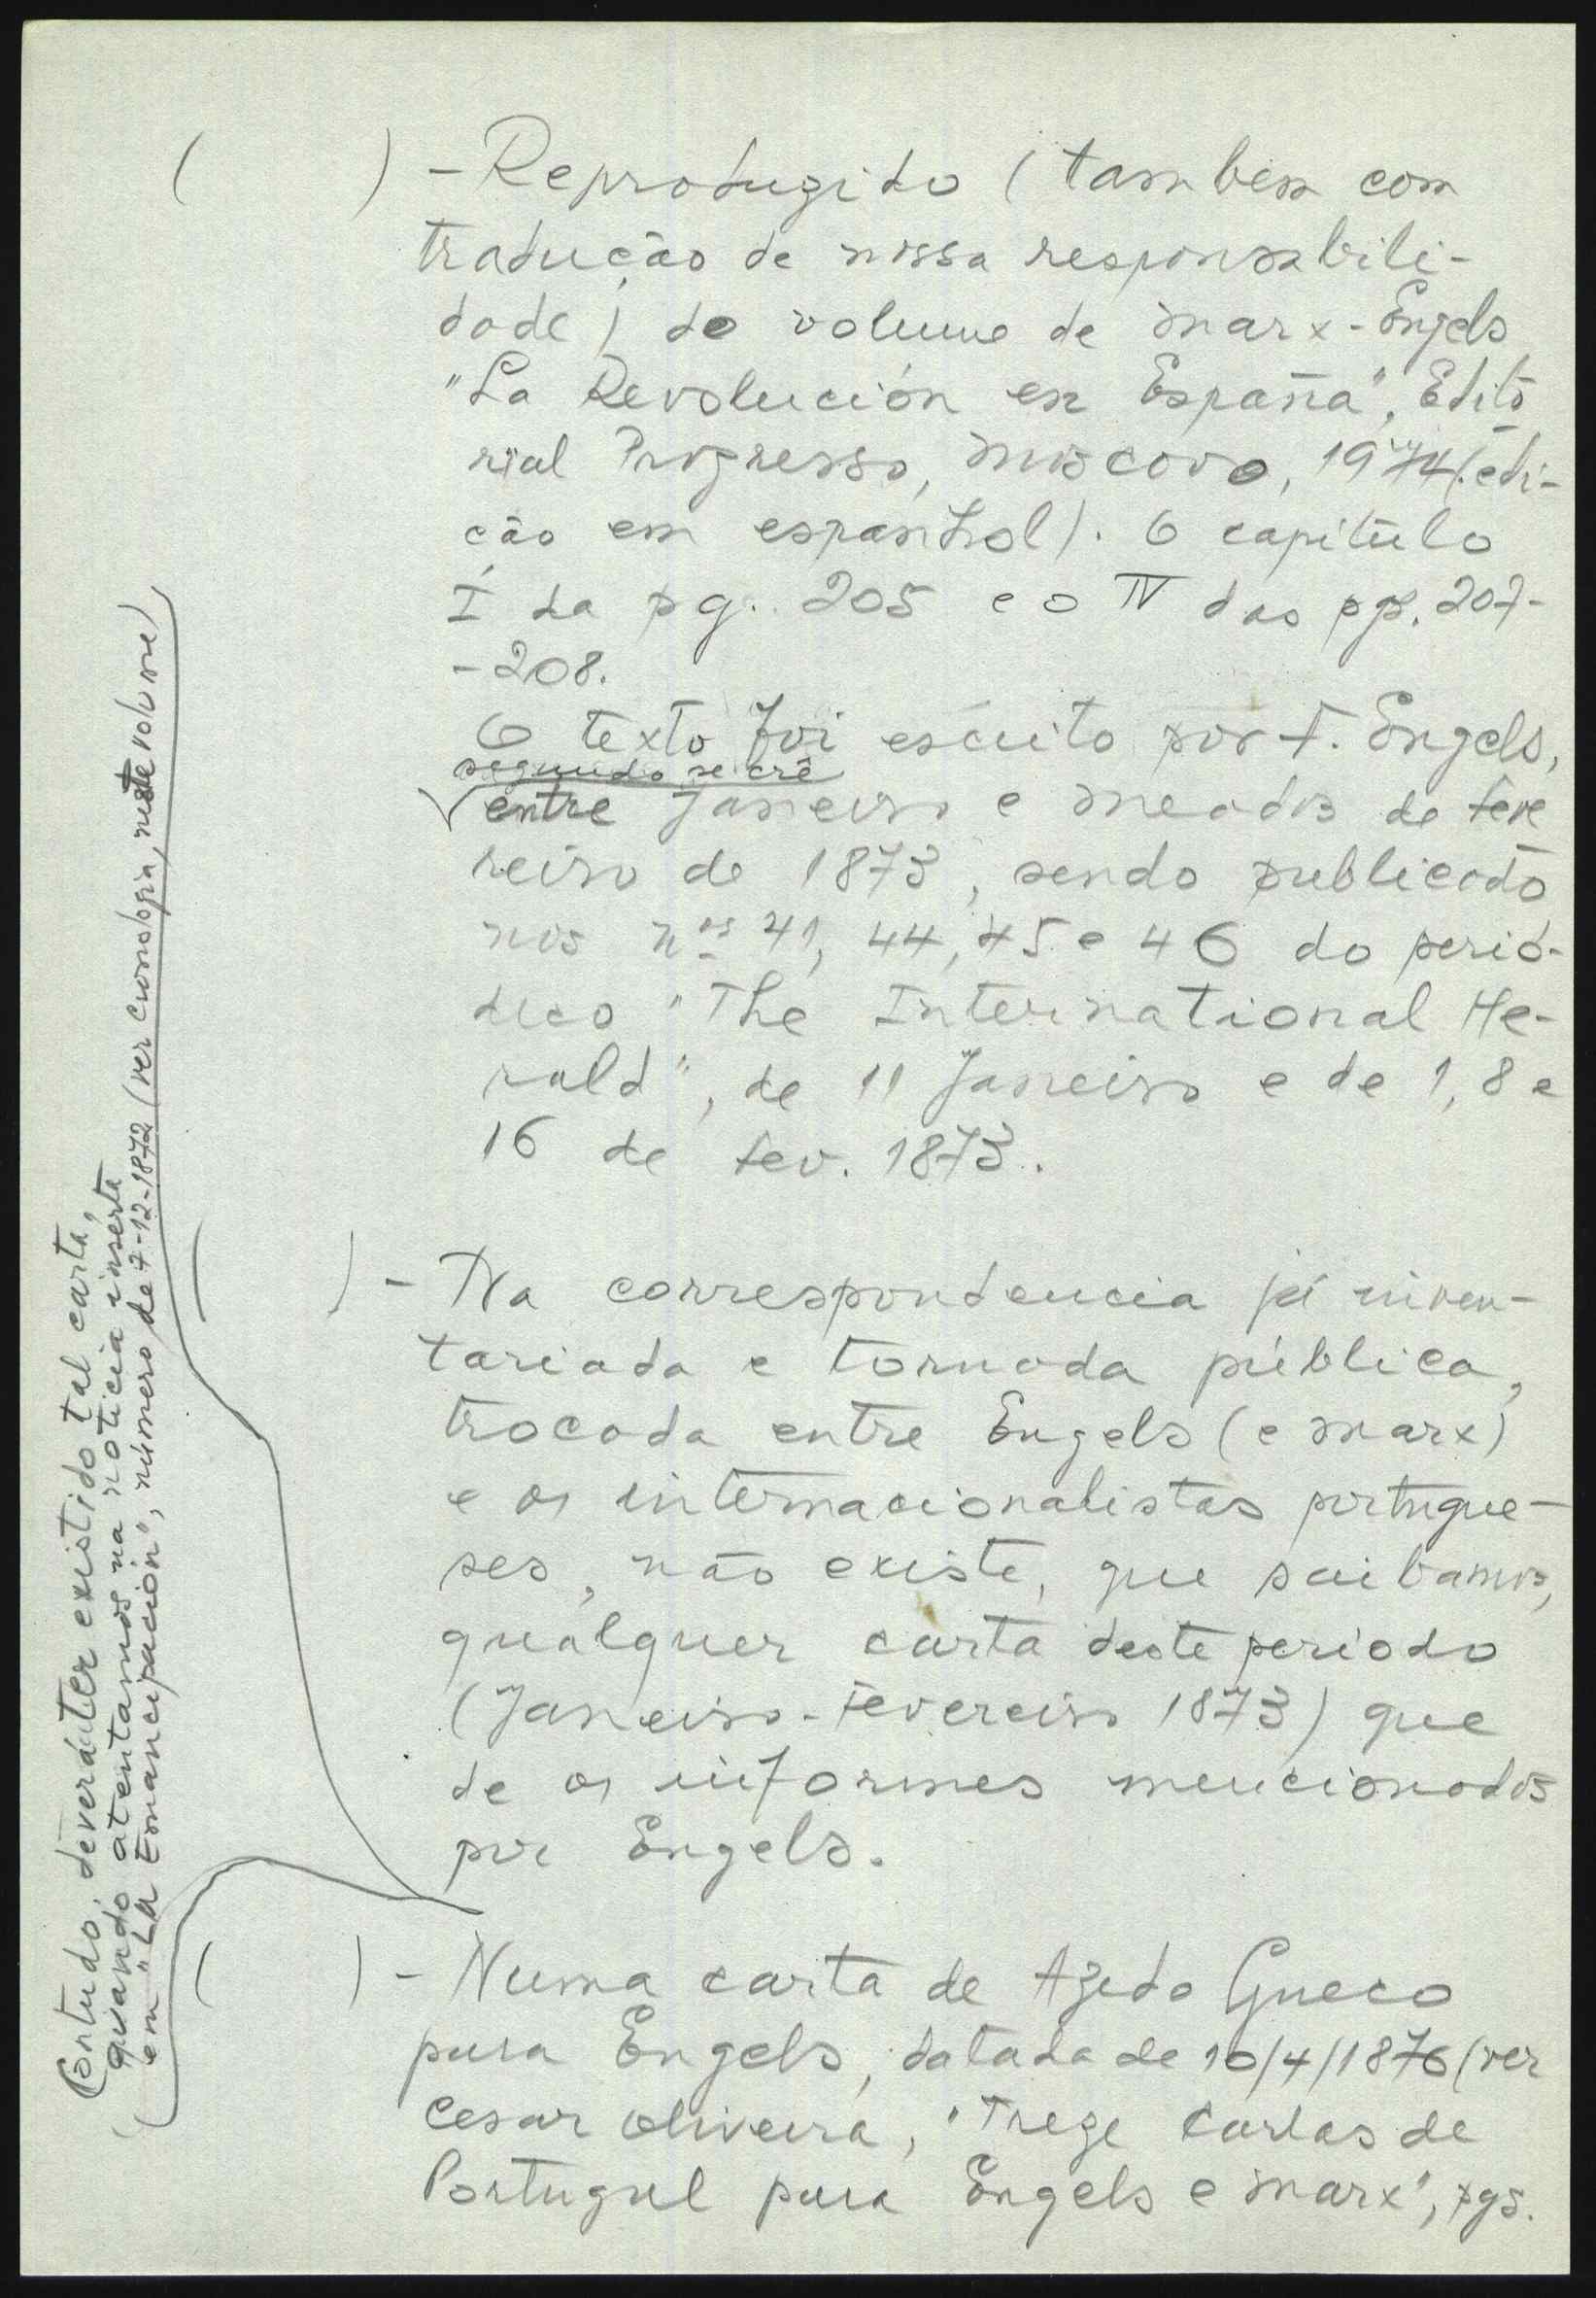 ( ) - Reproduzido (tambem com
tradução de nossa responsabili-
dade) do volume de Marx-Engels
"La Revolución en España", Edito
rial Progresso, Moscovo, 1974 (edi-
ção em espanhol). O capítulo
I da pg. 205 e o IV das pgs. 207-
-208.
O texto foi escrito por F. Engels,
segundo se crê
entre Janeiro e meados de Feve
reiro de 1873, sendo publicado
nos nos 41, 44, 45 e 46 do perió-
dico "The International He-
rald", de 11 Janeiro e de 1, 8 e
16 de Fev. 1873.
( ) - Na correspondencia já inven-
tariada e tornada pública,
trocada entre Engels (e Marx)
e os internacionalistas portugue-
ses, não existe, que saibamos,
qualquer carta deste periodo
(Janeiro-Fevereiro 1873) que
de os informes mencionados
por Engels.
Contudo, deverá ter existido tal carta,
quando atentamos na noticia inserta
em "La Emancipación", número de 7-12-1872 (ver cronologia, neste volume)
( ) - Numa carta de Azedo Gneco
para Engels, datada de 10/4/1876 (ver
Cesar Oliveira, "Treze Cartas de
Portugal para Engels e Marx", pgs.